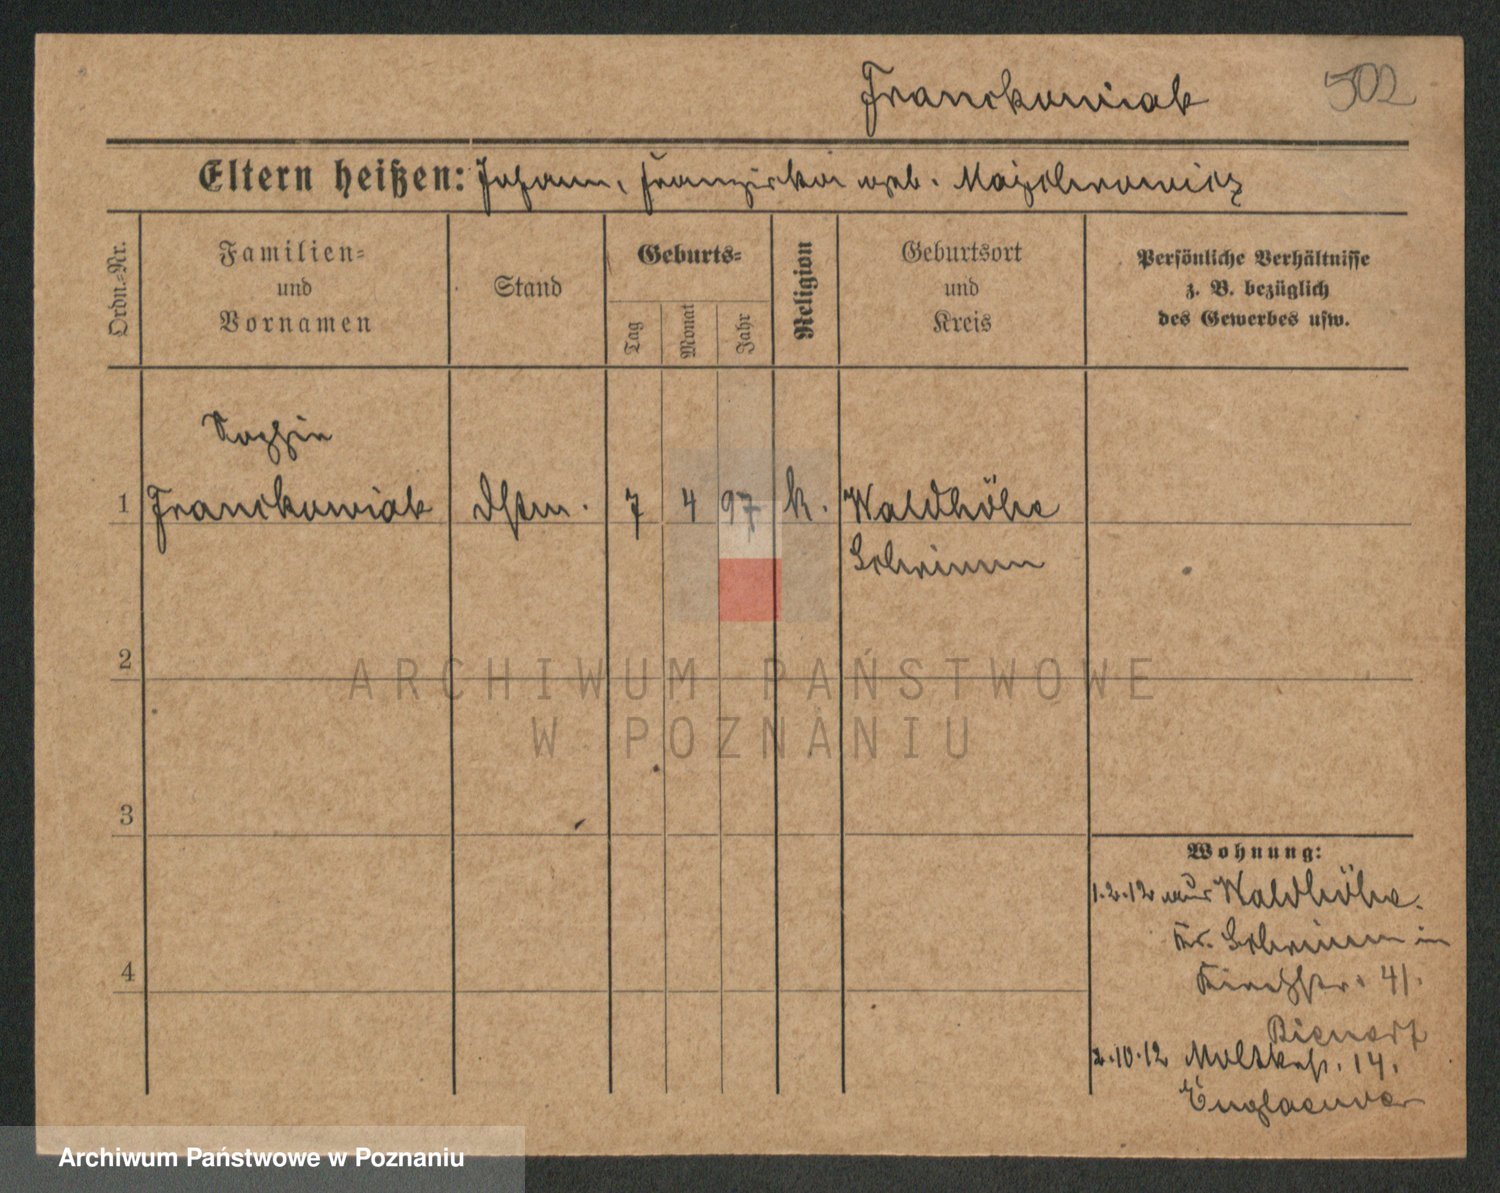 Franckowiak 502
Eltern heißen: Johann, Franziska geb.
Ordn.-Nr.
Familien-
und
Vornamen
Stand
Geburts-
Tag
Monat
Jahr
Religion
Geburtsort
und
Kreis
Persönliche Verhältnisse
z. B. bezüglich
des Gewerbes usw.
Sophie
1 Franckowiak Dstm. 7 4 97 k. Waldhöhe
Schrimm
2
3
4
Wohnung:
1.2.12 aus Waldhöhe.
Kr. Schrimm in
Kirchstr. 41.
Bienert
2.10.12 Moltkestr. 14.
ARCHIWUM PAŃSTWOWE
W POZNANIU
Archiwum Państwowe w Poznaniu